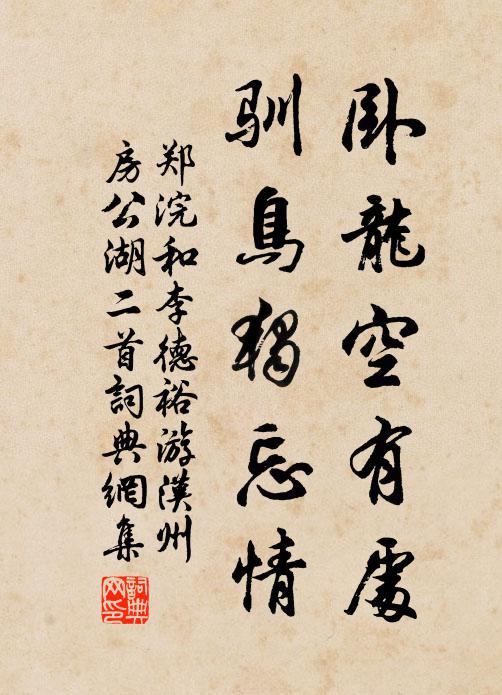 卧龍空有處
馴鳥獨忘情
郑浣和李德裕游漢州
房公湖二首詞典網集
詞典
网印